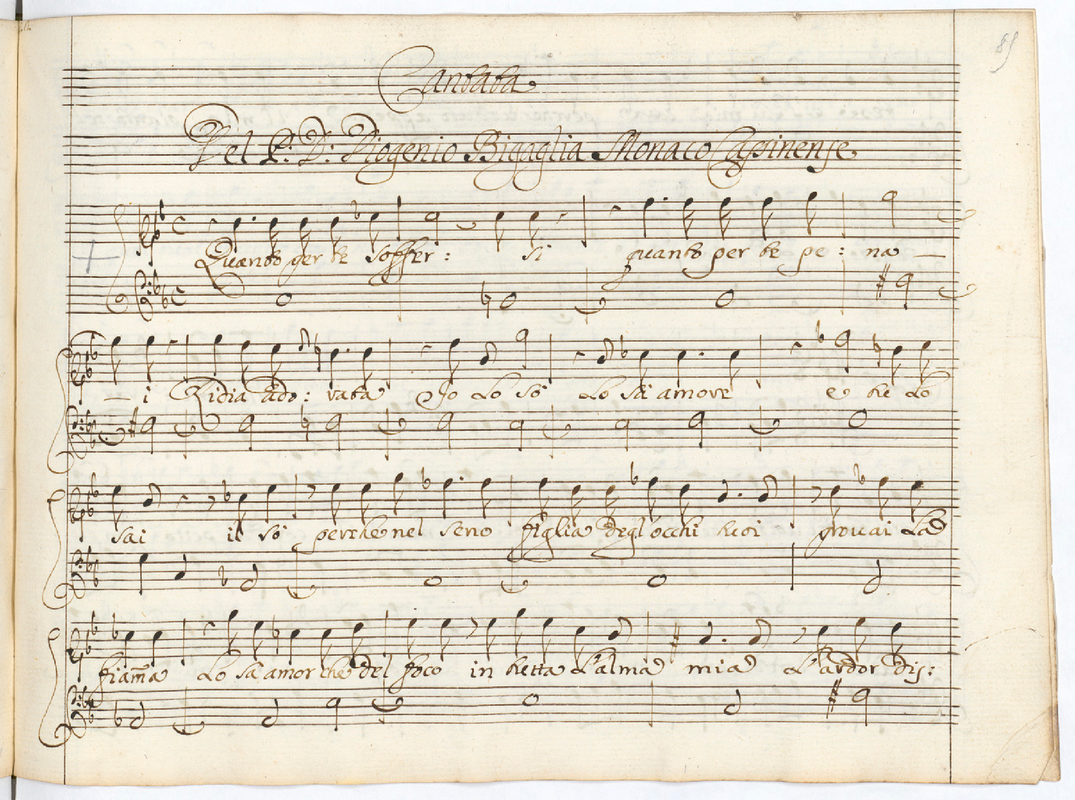 85
Cantata
Del P: D: Diogenio Bigaglia Monaco Cassinense
Quanto per te soffer: si quanto per te pe: na
i Lidia ado: rata Io lo sò lo sà amore e tu lo
sai il sò perche nel seno figlia degl' occhi tuoi prouai la
fiam̃a lo sà amor che del foco in tutta l'alma mia l'ardor dis: